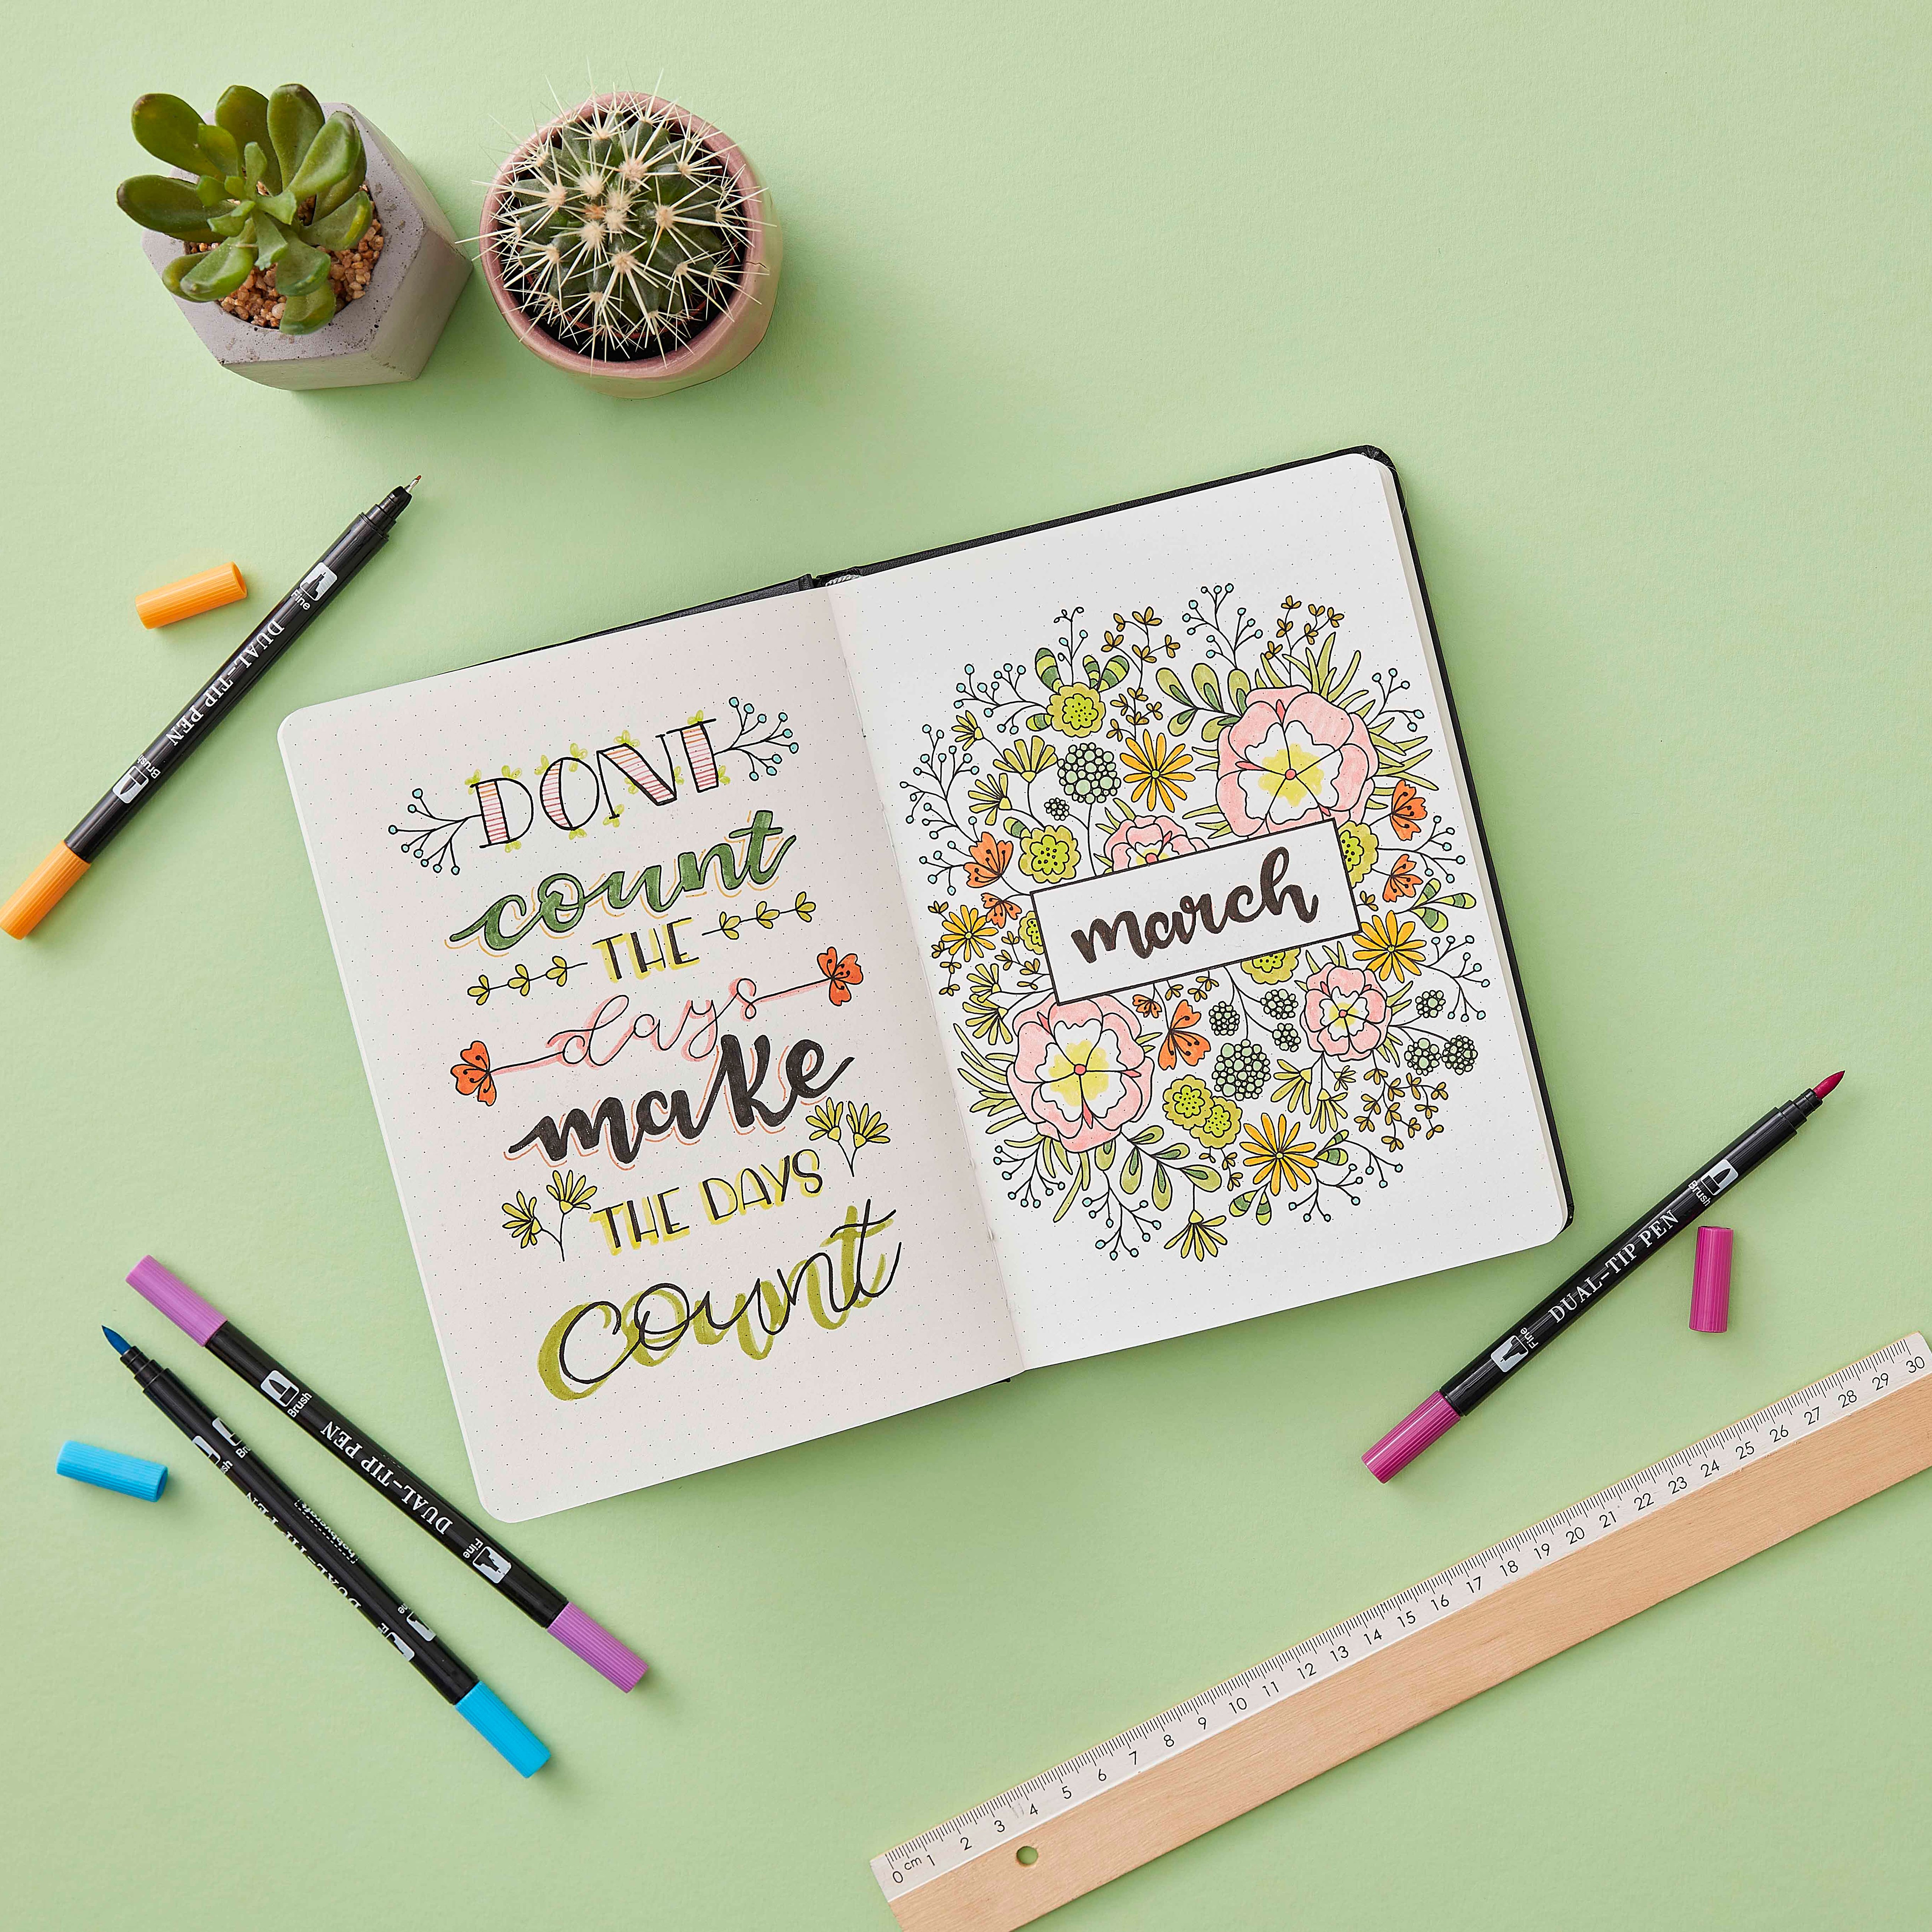 DONT
count
THE
days
make
THE DAYS
count
march
Fine
DUAL-TIP PEN
Brush
Brush
DUAL-TIP PEN
Fine
hobbycraft
Brush
DUAL-TIP PEN
Fine
0 cm 1 2 3 4 5 6 7 8 9 10 11 12 13 14 15 16 17 18 19 20 21 22 23 24 25 26 27 28 29 30